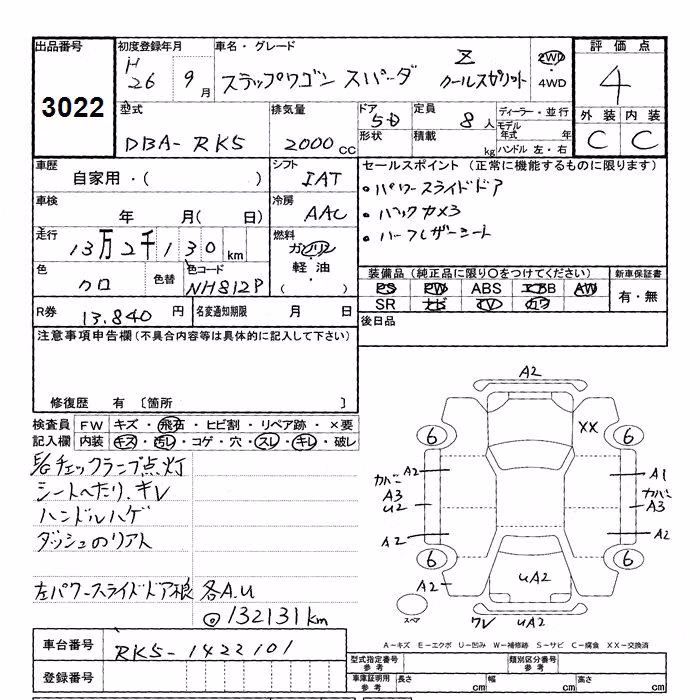 出品番号 初度登録年月 車名・グレード 評価点
3022 H26 9月 ステップワゴン スパーダ Z クールスピリット 2WD ・ 4WD 4
型式 排気量 ドア 定員 ディーラー・並行 外装 内装
DBA-RK5 2000cc 5D 8人 モデル年式 年 C C
形状 積載 kg ハンドル 左・右
車歴 シフト セールスポイント (正常に機能するものに限ります)
自家用・( ) IAT ・パワースライドドア
車検 冷房 ・バックカメラ
年 月( 日) AAC ・ハーフレザーシート
走行 燃料
13万2千130km ガソリン・軽油 ( )
色 色替 色コード 装備品 (純正品に限り○をつけてください) 新車保証書
クロ NH812P PS PW ABS エアB AW 有・無
SR ナビ TV カワ
R券 13,840円 名変通知期限 月 日 後日品
注意事項申告欄(不具合内容等は具体的に記入して下さい)
修復歴 有 〔箇所 〕
検査員 FW キズ・飛石・ヒビ割・リペア跡・×要
記入欄 内装 キズ・汚レ・コゲ・穴・スレ・キレ・破レ
チェックランプ点灯
シートへたり、キレ
ハンドルハゲ
ダッシュのリアト
左パワースライドドア 各A.U
◎132131km
車台番号 RK5-1422101
登録番号
A2
XX
6 6
A2 A1
カバー A3 カバー A3
U2
A2 A2
6 6
A2 UA2
スペア ワレ UA2
A-キズ E-エクボ U-凹み W-補修跡 S-サビ C-腐食 XX-交換済
型式指定番号 参考 類別区分番号 参考
車庫証明用 参考 長さ cm 幅 cm 高さ cm